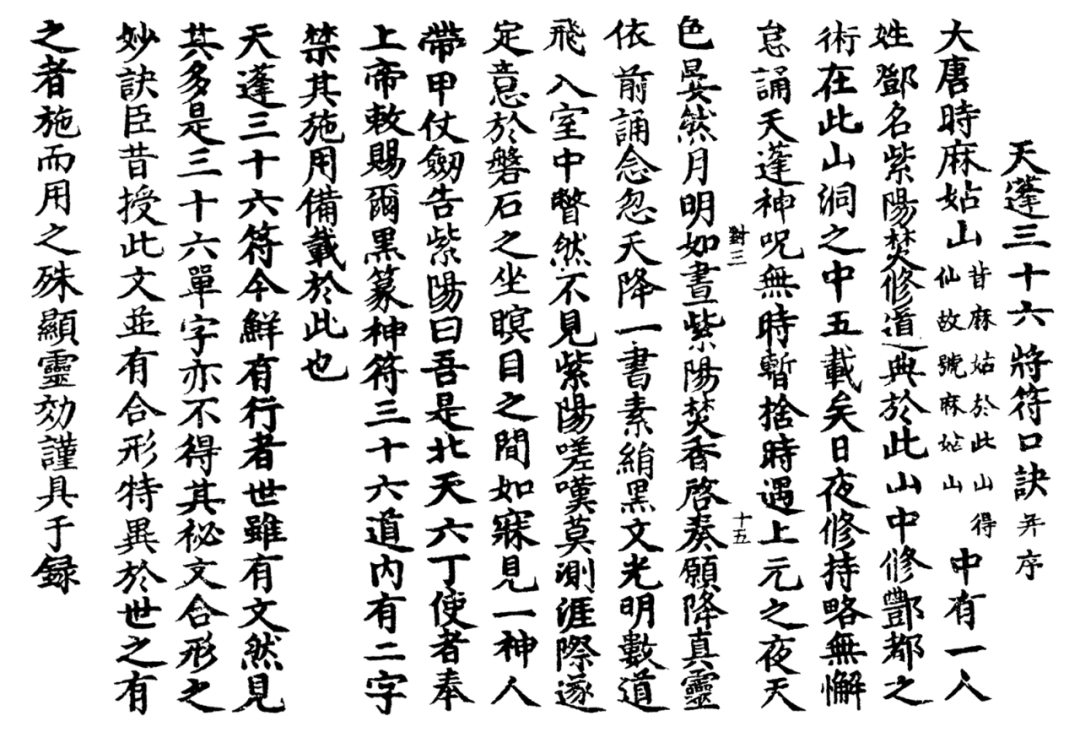 天蓬三十六將符口訣并序
大唐時麻姑山昔麻姑於此山得仙故號麻姑山中有一人
姓鄧名紫陽焚修道典於此山中修酆都之
術在此山洞之中五載矣日夜修持略無懈
怠誦天蓬神呪無時暫捨時遇上元之夜天
對三
十五
色晏然月明如晝紫陽焚香啓奏願降真靈
依前誦念忽天降一書素絹黑文光明數道
飛入室中瞥然不見紫陽嗟嘆莫測涯際遂
定息於磐石之坐瞑目之間如寐見一神人
帶甲仗劔告紫陽曰吾是北天六丁使者奉
上帝敕賜爾黑篆神符三十六道內有二字
禁其施用備載於此也
天蓬三十六符今鮮有行者世雖有文然見
其多是三十六單字亦不得其祕文合形之
妙訣臣昔授此文並有合形特異於世之有
之者施而用之殊顯靈効謹具于録